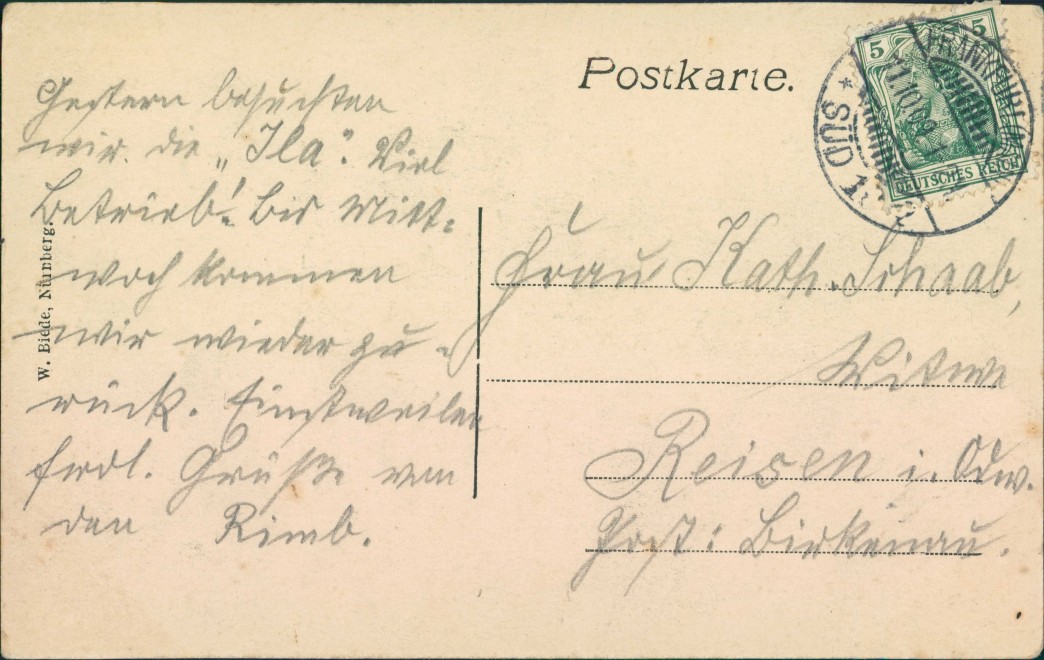 Postkarte.
5 5
DEUTSCHES REICH
FRANKFURT
11.10.09
* SÜD
W. Biede, Nürnberg.
Gestern besuchten
wir die „Ila". Viel
Betrieb! Bis Mitt-
woch kommen
wir wieder zu-
rück. Einstweilen
frdl. Grüße von
den Rimb.
Frau Kath. Schaab,
Witwe
Reisen i. Odw.
Post: Birkenau.